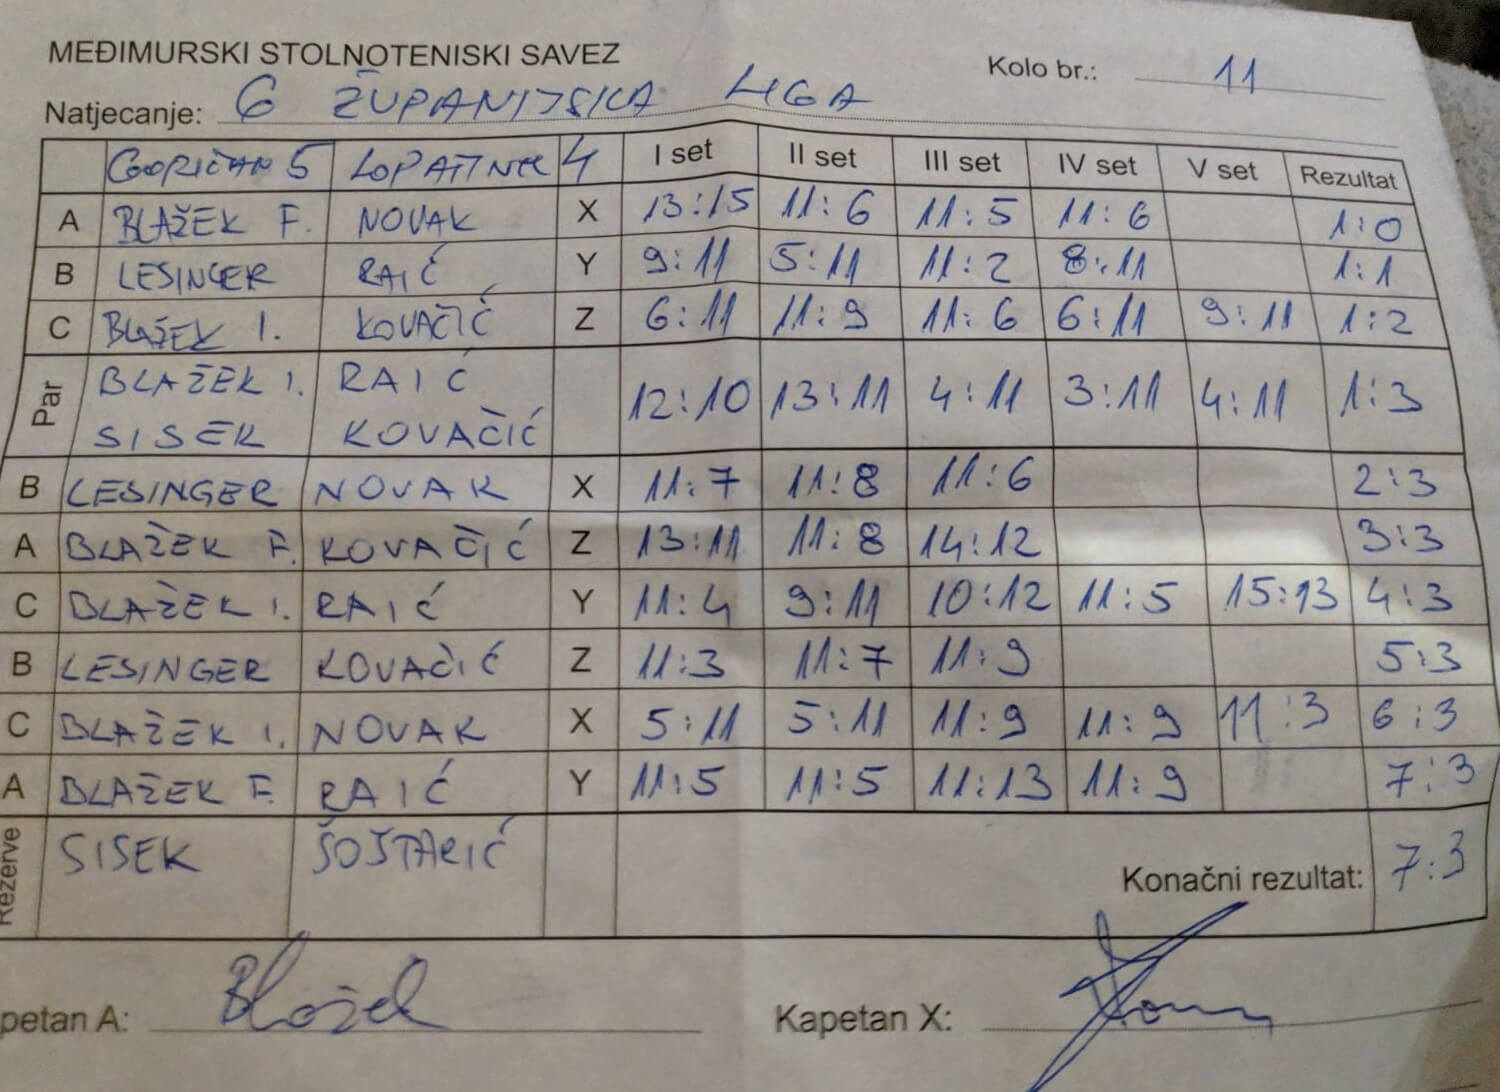 MEĐIMURSKI STOLNOTENISKI SAVEZ
Kolo br.: 11
Natjecanje: 6 ŽUPANIJSKA LIGA
GORIČAN 5 LOPATINEC 4 I set II set III set IV set V set Rezultat
A BLAŽEK F. NOVAK X 13:15 11:6 11:5 11:6 1:0
B LESINGER RAIĆ Y 9:11 5:11 11:2 8:11 1:1
C BLAŽEK I. KOVAČIĆ Z 6:11 11:9 11:6 6:11 9:11 1:2
Par BLAŽEK I. RAIĆ 12:10 13:11 4:11 3:11 4:11 1:3
SISEK KOVAČIĆ
B LESINGER NOVAK X 11:7 11:8 11:6 2:3
A BLAŽEK F. KOVAČIĆ Z 13:11 11:8 14:12 3:3
C BLAŽEK I. RAIĆ Y 11:4 9:11 10:12 11:5 15:13 4:3
B LESINGER KOVAČIĆ Z 11:3 11:7 11:9 5:3
C BLAŽEK I. NOVAK X 5:11 5:11 11:9 11:9 11:3 6:3
A BLAŽEK F. RAIĆ Y 11:5 11:5 11:13 11:9 7:3
Rezerve SISEK ŠOŠTARIĆ Konačni rezultat: 7:3
petan A: Blažek Kapetan X: